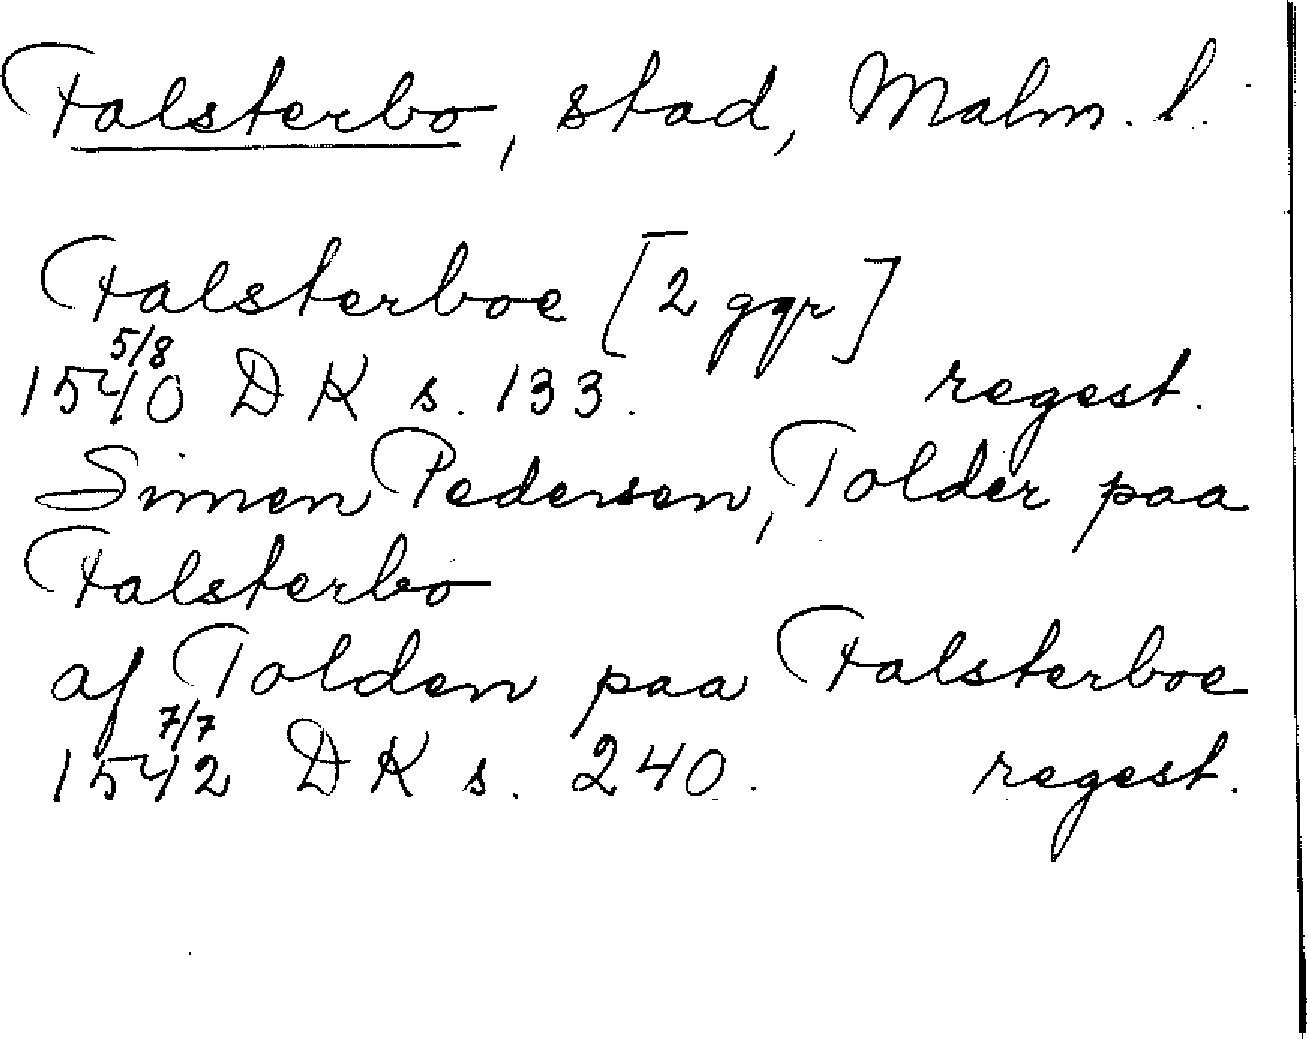 Falsterbo, stad, Malm. l.
Falsterboe [2 ggr]
5/8
1540 DK s. 133. regest.
Simen Pedersen, Tolder paa
Falsterbo
af Tolden paa Falsterboe
7/7
1542 DK s. 240. regest.